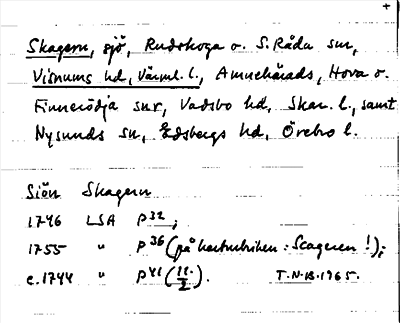 +
Skagern, sjö, Rudskoga o. S. Råda snr,
Visnums hd, Värml. l., Amnehärads, Hova o.
Finnerödja snr, Vadsbo hd, Skar. l., samt
Nysunds sn, Edsbergs hd, Örebro l.
Siön Skagern
1746 LSA P32;
1755 " P36 (på kartrubriken: Scageren!);
c. 1744 " P41 (11./2). T.N.B. 1965.